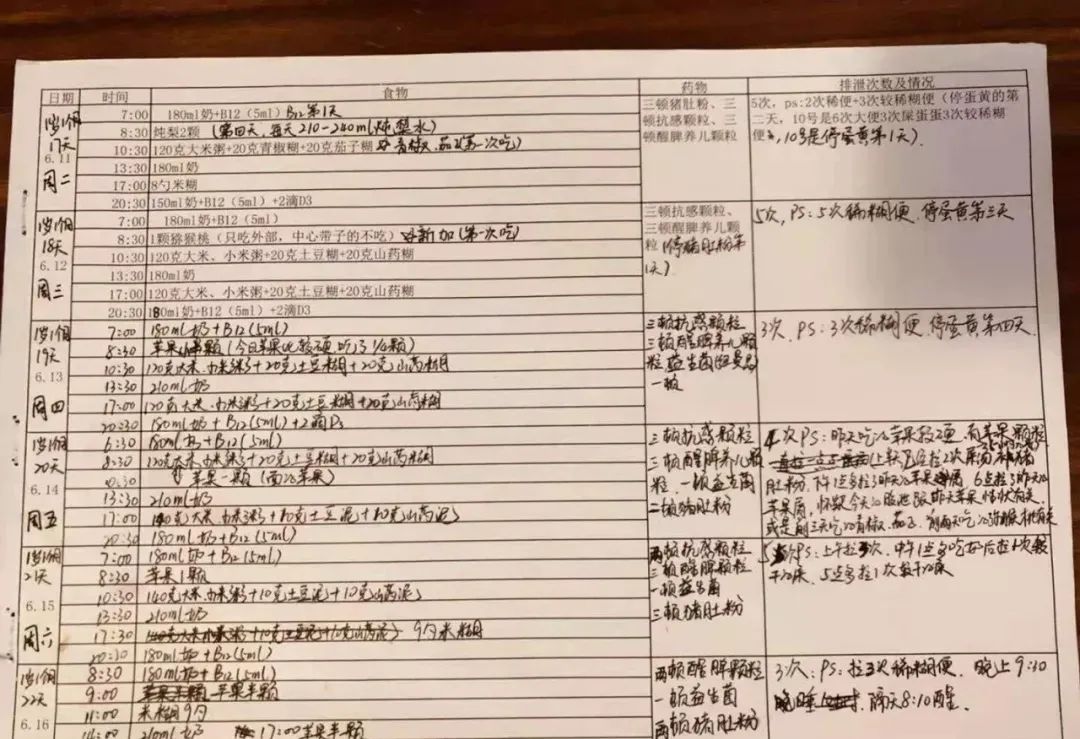 日期 时间 食物 药物 排泄次数及情况
1岁1个月17天
6.11
周二
7:00 180ml奶+B12（5ml）B12第1天
8:30 炖梨2颗（第四天，每天210-240ml炖梨水）
10:30 120克大米糊+20克青椒糊+20克茄子糊 青椒、茄子(第一次吃)
13:30 180ml奶
17:00 8勺米糊
20:30 150ml奶+B12（5ml）+2滴D3
三顿猪肚粉、三
顿抗感颗粒、三
顿醒脾养儿颗粒
5次，ps:2次稀便+3次较稀糊便（停蛋黄的第
二天，10号是6次大便3次屎蛋蛋3次较稀糊
便，10号是停蛋黄第1天）.
1岁1个月
18天
6.12
周三
7:00 180ml奶+B12（5ml）
8:30 1颗猕猴桃（只吃外部，中心带子的不吃）新加(第一次吃)
10:30 120克大米、小米粥+20克土豆糊+20克山药糊
13:30 180ml奶
17:00 120克大米、小米粥+20克土豆糊+20克山药糊
20:30 180ml奶+B12（5ml）+2滴D3
三顿抗感颗粒、
三顿醒脾养儿颗
粒(停猪肚粉第
1天)
5次，PS:5次稀糊便，停蛋黄第三天
1岁1个月
19天
6.13
周四
7:00 180ml奶+B12(5ml)
8:30 苹果半颗(今日苹果比较硬吃了1/4颗)
10:30 120克大米、小米粥+20克土豆糊+20克山药糊
13:30 210ml奶
17:00 120克大米、小米粥+20克土豆糊+20克山药糊
20:30 180ml奶+B12(5ml)+2滴D3
三顿抗感颗粒
三顿醒脾养儿颗
粒，益生菌
一顿
3次，PS:3次稀糊便，停蛋黄第四天.
1岁1个月
20天
6.14
周五
6:30 180ml奶+B12(5ml)
8:30 120克大米、小米粥+20克土豆糊+20克山药糊
10:30 苹果一颗(面的苹果)
13:30 210ml奶
17:00 140克大米、小米粥+10克土豆泥+10克山药泥
20:30 180ml奶+B12(5ml)
三顿抗感颗粒
三顿醒脾养儿颗
粒，一顿益生菌
二顿猪肚粉
4次PS:昨天吃的苹果较硬，有苹果颗粒
肚粉，下午1点多拉了昨天的苹果屑，6点拉了昨天的
苹果屑，怀疑今天的腹泄跟昨天苹果性状有关，
或是前三天吃的青椒、茄子，前两天吃的猕猴桃有关
1岁1个月
21天
6.15
周六
7:00 180ml奶+B12(5ml)
8:30 苹果1颗
10:30 140克大米、小米粥+10克土豆泥+10克山药泥
13:30 210ml奶
17:30 9勺米糊
20:30 180ml奶+B12(5ml)
两顿抗感颗粒
三顿醒脾颗粒
一顿益生菌
三顿猪肚粉
5次PS:上午拉3次，中午1点多吃好后拉1次
5点多拉1次
1岁1个月
22天
6.16
8:30 180ml奶+B12(5ml)
9:00 苹果半颗
11:00 米糊9勺
14:00 210ml奶 17:00苹果半颗
两顿醒脾颗粒
一顿益生菌
两顿猪肚粉
3次，PS:拉三次稀糊便，晚上9:30
晚睡，隔天8:10醒.